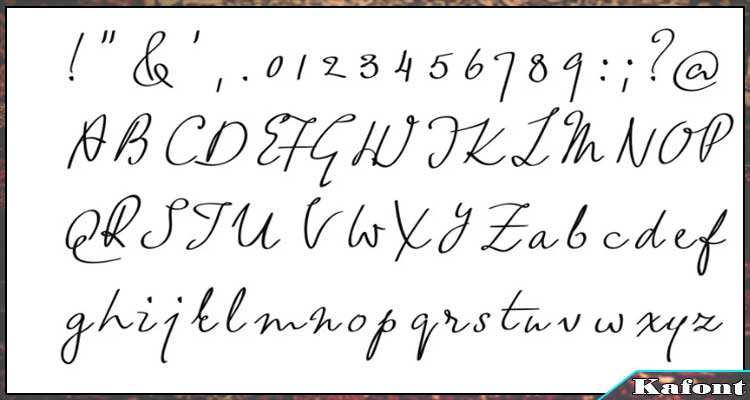 ! " & ' , . 0 1 2 3 4 5 6 7 8 9 : ; ? @
A B C D E F G H I J K L M N O P
Q R S T U V W X Y Z a b c d e f
g h i j k l m n o p q r s t u v w x y z
Kafont